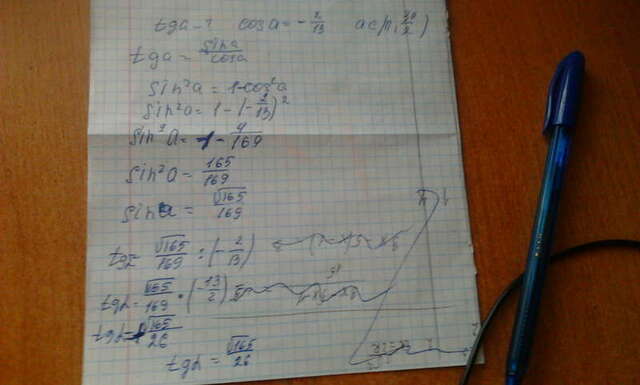 tga - ? cosa = -2/13 a∈(π; 3π/2)
tga = sina/cosa
sin²a = 1-cos²a
sin²a = 1 - (-2/13)²
sin²a = 1 - 4/169
sin²a = 165/169
sina = √165/169
tgα = √165/169 : (-2/13)
tgα = √165/169 · (-13/2)
tgα = √165/26
tgα = √165/26